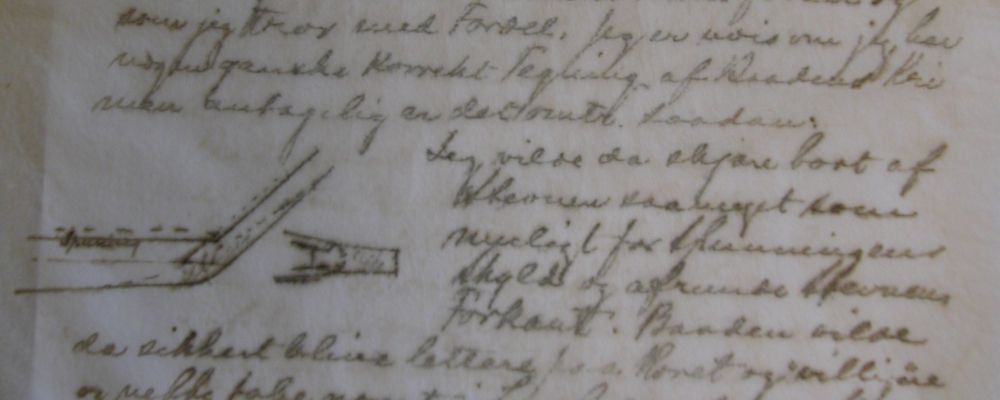 som jeg tror med Fordel. Jeg er uvis om jeg har
nogen ganske korrekt Tegning af Baadens Kjøl
men antagelig er det omtr. saadan:
Jeg vilde da skjære bort af
Stevnen saameget som
muligt for Spunningens
Skyld og afrunde Stevnens
Forkant. Baaden vilde
Spunning
da sikkert blive lettere paa Roret og